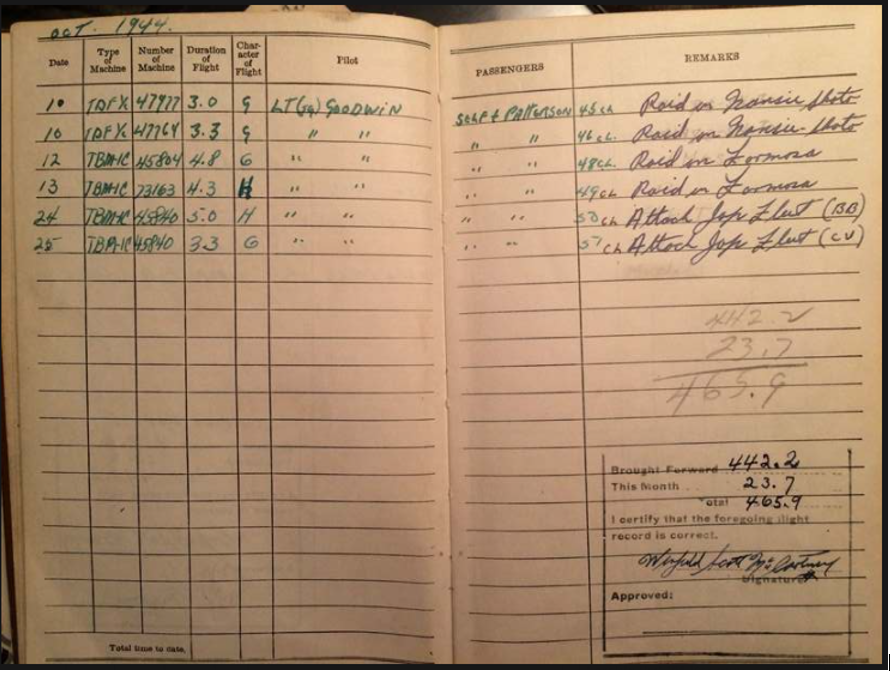 OCT. 1944.
Date Type of Machine Number of Machine Duration of Flight Char- acter of Flight Pilot PASSENGERS REMARKS
10 47977 3.0 G LT(jg) GOODWIN SELF & PATTERSON 45 CL Raid on Nansei photo
10 47764 3.3 G " " " " 46 CL. Raid on Nansei photo
12 TBM-1C 45804 4.8 G " " " " 48 CL. Raid on Formosa
13 TBM-1C 73163 4.3 H " " " " 49 CL Raid on Formosa
24 TBM-1C 45840 5.0 H " " " " CL Attack Jap Fleet (BB)
25 TBM-1C 45840 3.3 G " " " " CL Attack Jap Fleet (CV)
442.2
23.7
465.9
Brought Forward 442.2
This Month 23.7
Total 465.9
I certify that the foregoing flight
record is correct.
Winfield Scott McCartney
Signature
Approved:
Total time to date,